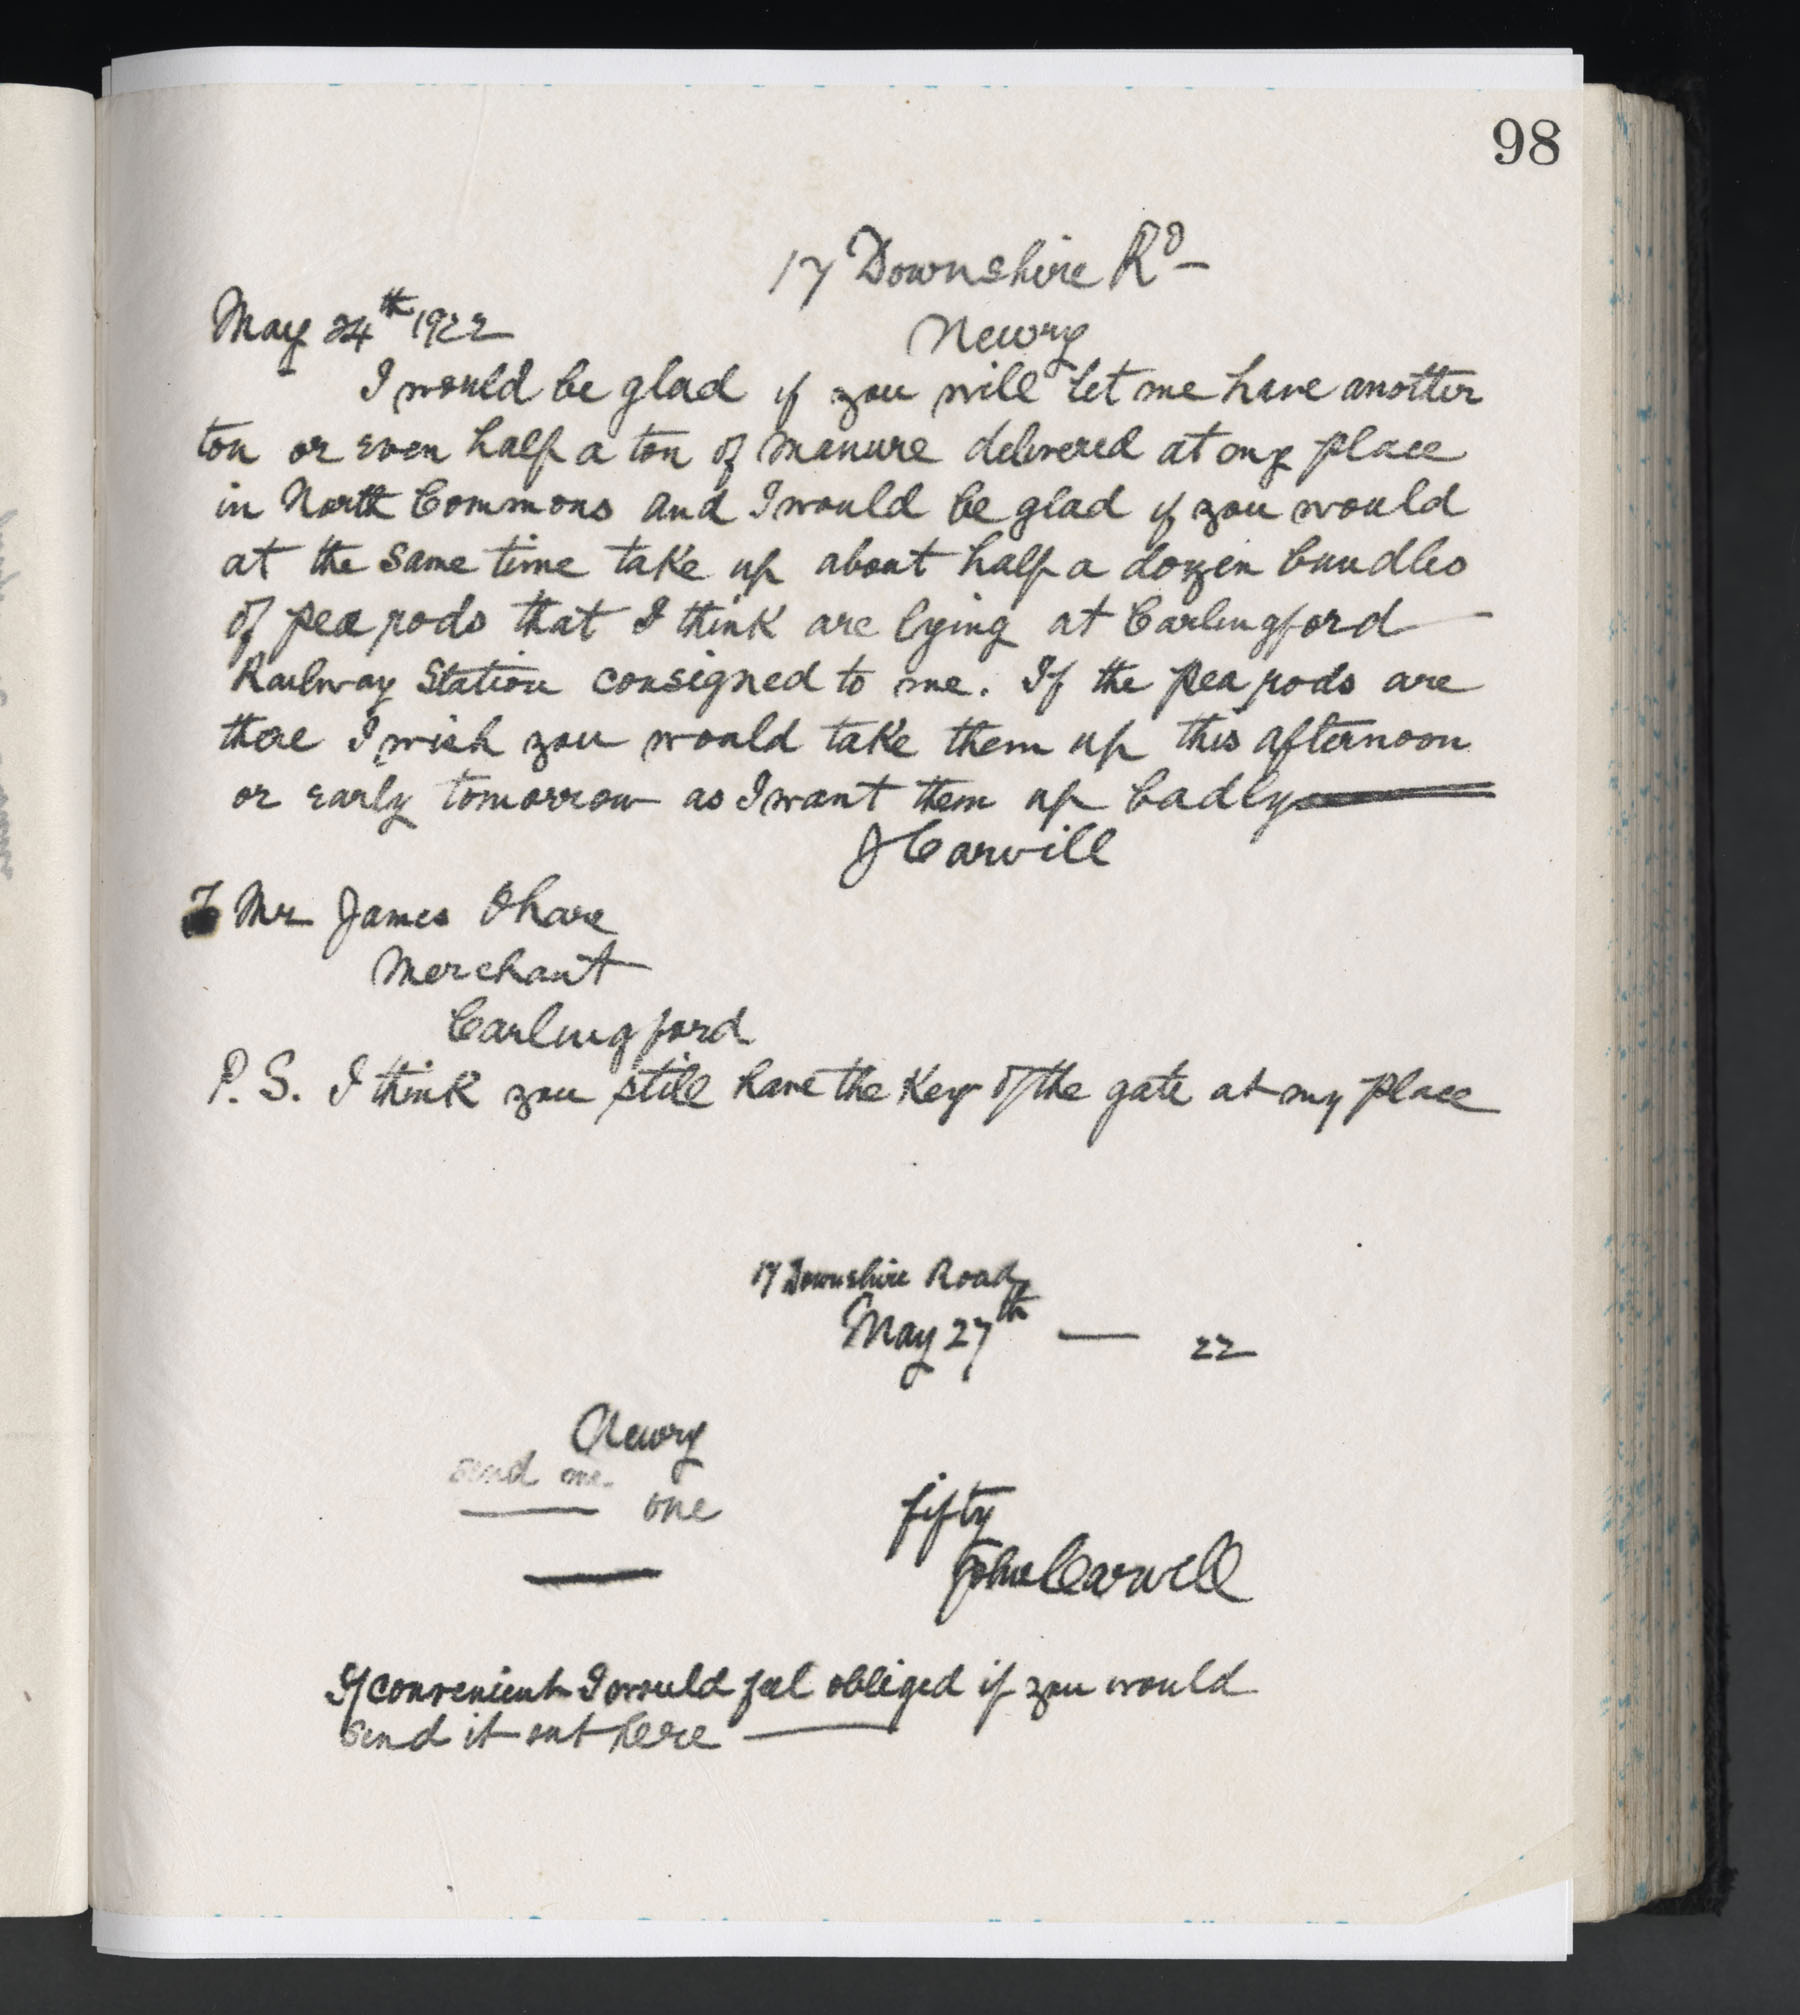 98
17 Downshire Rd —
May 24th 1922
Newry
I would be glad if you will let me have another
ton or even half a ton of manure delivered at my place
in North Commons and I would be glad if you would
at the same time take up about half a dozen bundles
of pea rods that I think are lying at Carlingford —
Railway Station consigned to me. If the pea rods are
there I wish you would take them up this afternoon
or early tomorrow as I want them up badly
J Carvill
To Mr James Ohare
Merchant
Carlingford
P.S. I think you still have the key of the gate at my place
17 Downshire Road
May 27th — 22
Newry
send me
one fifty
John Carvill
If convenient I would feel obliged if you would
send it out here —